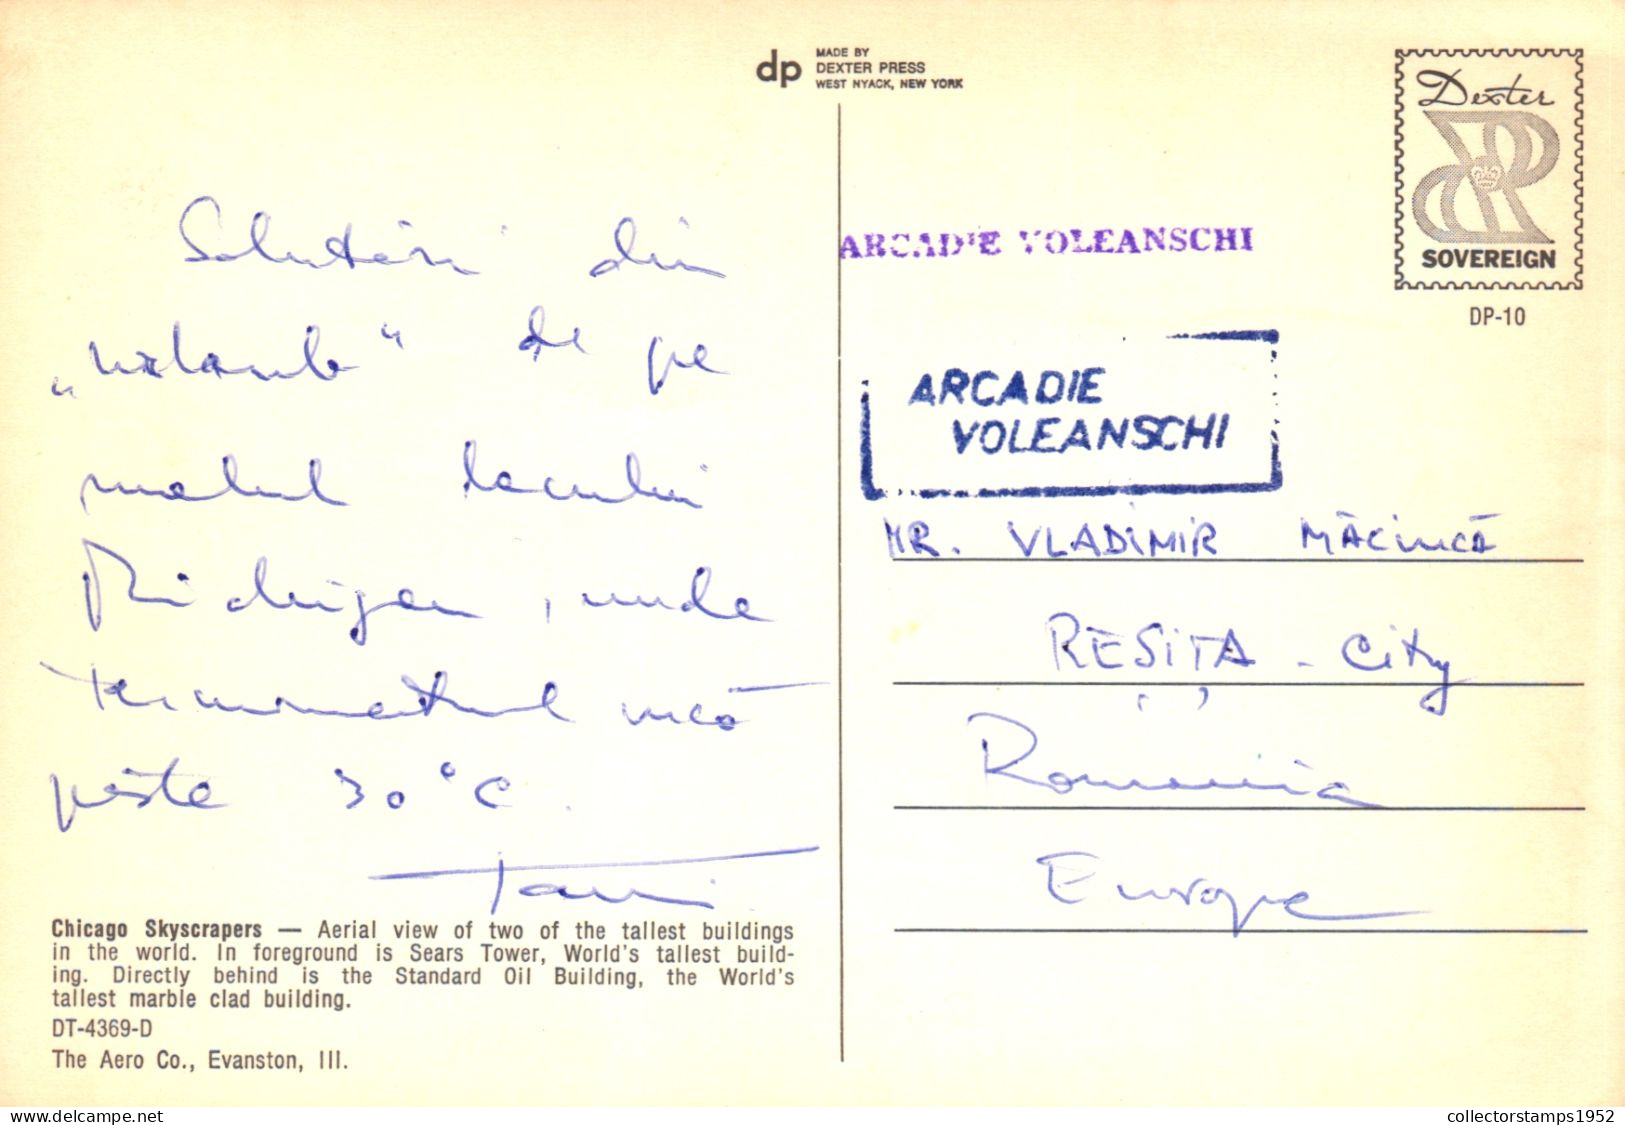 dp
MADE BY
DEXTER PRESS
WEST NYACK, NEW YORK
Dexter
SOVEREIGN
DP-10
Salutări din
de pe
malul lacului
Michigan, unde
termometrul urcă
peste 30°C.
Chicago Skyscrapers — Aerial view of two of the tallest buildings
in the world. In foreground is Sears Tower, World's tallest build-
ing. Directly behind is the Standard Oil Building, the World's
tallest marble clad building.
DT-4369-D
The Aero Co., Evanston, Ill.
ARCADIE VOLEANSCHI
ARCADIE
VOLEANSCHI
MR. VLADIMIR MĂCINCĂ
REŞIŢA - City
Romania
Europe
delcampe.net
collectorstamps1952